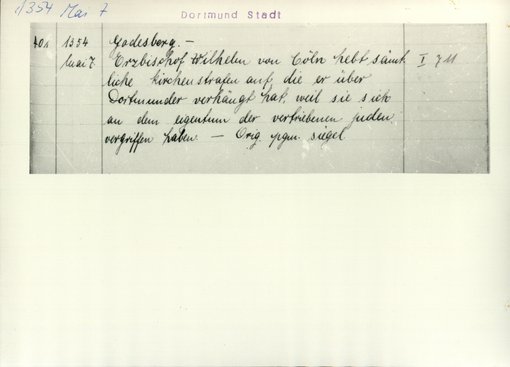 1354 Mai 7
Dortmund Stadt
401 1354 Godesberg. –
Mai 7 Erzbischof Wilhelm von Cöln hebt sämt I 711
liche kirchenstrafen auf, die er über
Dortmunder verhängt hat, weil sie sich
an dem eigentum der vertriebenen juden
vergriffen haben. – Orig. pgm. siegel